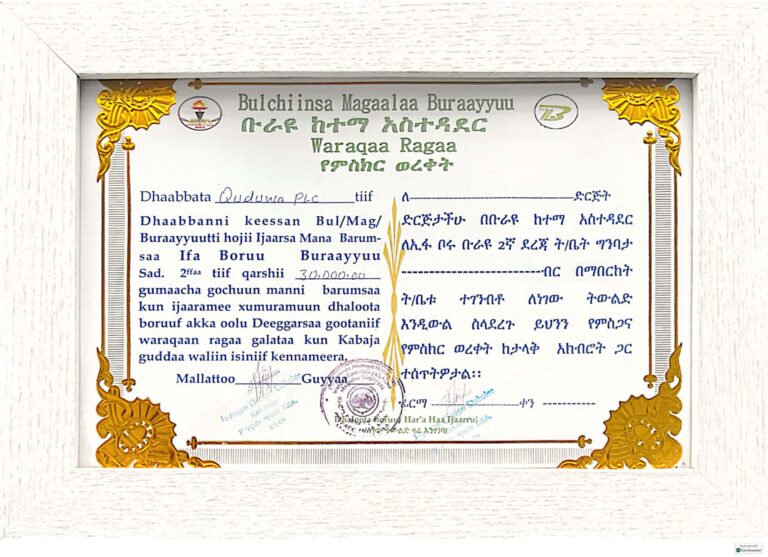 Bulchiinsa Magaalaa Buraayyuu
ቡራዩ ከተማ አስተዳደር
Waraqaa Ragaa
የምስክር ወረቀት
Dhaabbata Quduwa PLC tiif
Dhaabbanni keessan Bul/Mag/
Buraayyuutti hojii Ijaarsa Mana Barum-
saa Ifa Boruu Buraayyuu
Sad. 2ffaa tiif qarshii 30.000.00
gumaacha gochuun manni barumsaa
kun ijaaramee xumuramuun dhaloota
boruuf akka oolu Deeggarsaa gootaniif
waraqaan ragaa galataa kun Kabaja
guddaa waliin isiniif kennameera.
Mallattoo Guyyaa
ለ ድርጅት
ድርጅታችሁ በቡራዩ ከተማ አስተዳደር
ለኢፋ ቦሩ ቡራዩ 2ኛ ደረጃ ት/ቤት ግንባታ
ብር በማበርከት
ት/ቤቱ ተገንብቶ ለነገው ትውልድ
እንዲውል ስላደረጉ ይህንን የምስጋና
የምስክር ወረቀት ከታላቅ አክብሮት ጋር
ተሰጥትዎታል፡፡
ፊርማ ቀን
Dhaloota Boruu Har'a Haa Ijaarru!